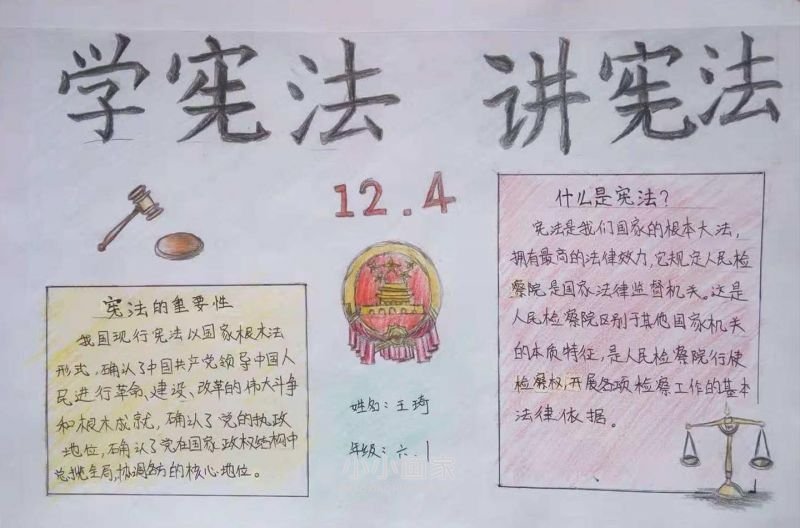 学宪法 讲宪法
12.4
宪法的重要性
我国现行宪法以国家根本法
形式,确认了中国共产党领导中国人
民进行革命、建设、改革的伟大斗争
和根本成就,确认了党的执政
地位,确认了党在国家政权结构中
总揽全局,协调各方的核心地位。
姓名:王琦
年级:六.1
什么是宪法?
宪法是我们国家的根本大法,
拥有最高的法律效力,它规定人民检
察院是国家法律监督机关。这是
人民检察院区别于其他国家机关
的本质特征,是人民检察院行使
检察权,开展各项检察工作的基本
法律依据。
小小画家